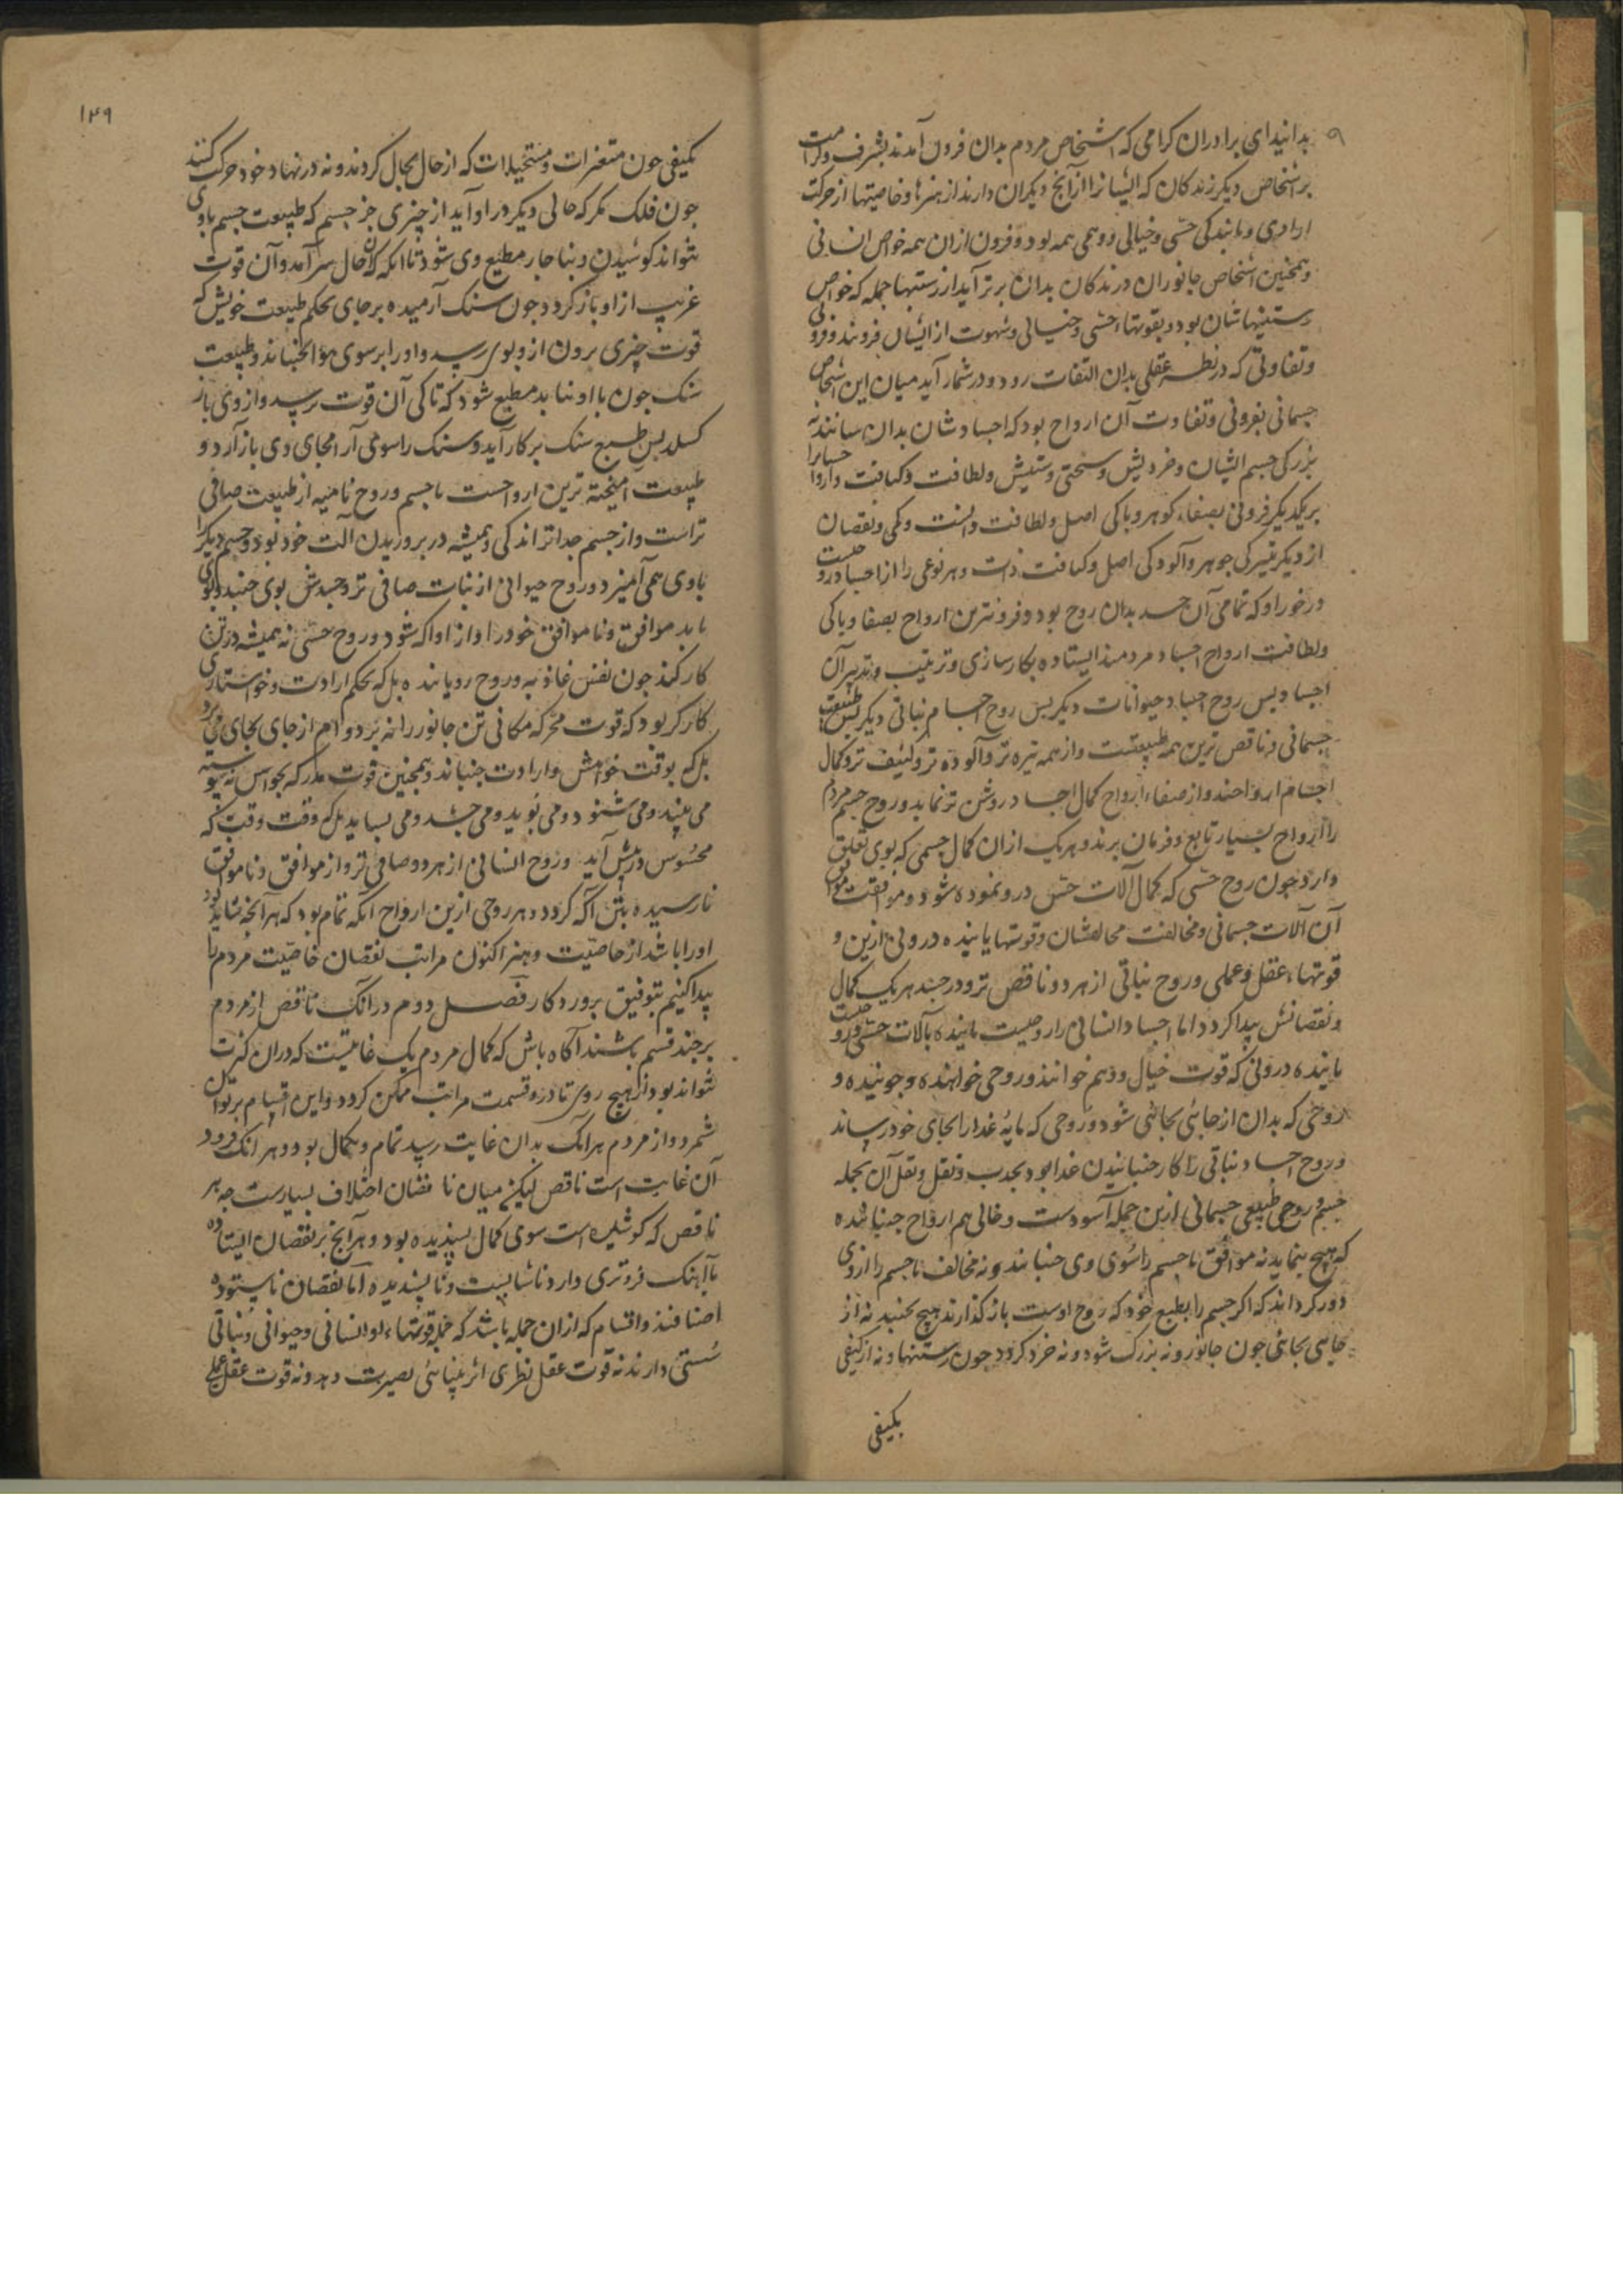 بدانید ای برادران گرامی که اشخاص مردم بدان فزون آمدند بشرف و کرامت
بر اشخاص دیگر زندگان که ایشانرا از آنچ دیگران دارند از هنرها و خاصیتها از حرکت
ارادی و مانندگی حسّی و خیالی و وهمی همه بود و فزون ازان همه خواص انسانی
و همچنین اشخاص جانوران درندگان بدان برتر آید از رستنیها جمله که خواص
رستنیهاشان بود و بقوتهاء حسّی و خیالی و شهوت از ایشان فزوند و فزونی
و تفاوتی که در نظر عقلی بدان التفات رود و در شمار آید میان این اشخاص
جسمانی بفزونی و تفاوت آن ارواح بود که اجسادشان بدان بمانند نه
بزرگی جسم ایشان و خردیش و سختی و سستیش و لطافت و کثافت و ارواح
بر یکدیگر فزونی بصفاء گوهر و پاکی اصل و لطافت و کمی و نقصان
از دیگر تیرگی جوهر و آلودگی اصل و کثافت ذات و هر نوعی را از اجساد روحیست
درخور او که تمامی آن جسد بدان روح بود و فزونترین ارواح بصفا و پاکی
و لطافت ارواح اجساد مردمند ایستاده بکارسازی و ترتیب و تدبیر آن
اجساد پس روح اجساد حیوانات دیگر پس روح اجسام نباتی دیگر پس طبیعت
جسمانی و ناقص ترین همه طبیعتست و از همه تیره تر و آلوده تر و کثیف تر و کمال
اجسام ارواحند و از صفاء ارواح کمال اجساد روشن تر نماید و روح جسم مردم
را ارواح بسیار تابع و فرمان برند و هر یک ازان کمال جسمی که بوی تعلق
دارد چون روح حسّی که کمال آلات حسّ درو نموده شود و موافقت موافق
آن آلات جسمانی و مخالفت مخالفشان و قوتها یابنده درونی ازین و
قوتهاء عقل و عملی و روح نباتی از هر دو ناقص تر و در جسد هر یک کمال
و نقصانش پیدا گردد اما اجساد انسانی را روحیست یابنده بآلات حسّی و روحیست
یابنده درونی که قوت خیال و وهم خوانند و روحی خواهنده و جوینده و
روحی که بدان از جائی بجائی شود و روحی که مایهٔ غذا را بجای خود رساند
و روح اجساد نباتی را کار جنبانیدن غذا بود بجذب و نقل و نقل آن بجمله
جسم و روحی طبیعی جسمانی ازین جمله آسودست و خالی هم ارواح جنباننده
که هیچ ننماید نه موافق با جسم را سوی وی جنبانند و نه مخالف با جسم را از وی
دور گرداند که اگر جسم را بطبع خود که روح اوست بازگذارند هیچ نجنبد نه از
جایی بجائی چون جانور و نه بزرگ شود و نه خرد گردد چون رستنیها و نه از کیفی
بکیفی
۱۴۹
بکیفی چون متغیرات و مستحیلات که از حال بحال گردند و نه در نهاد خود حرکت کنند
چون فلک مگر که حالی دیگر در او آید از چیزی جز جسم که طبیعت جسم با وی
نتواند کوشیدن و بناچار مطیع وی شود تا آنکه که آن حال سر آمد و آن قوت
غریب از او باز گردد چون سنگ آرمیده بر جای بحکم طبیعت خویش که
قوت چیزی برون ازو بوی رسد و او را بر سوی هوا بجنباند و طبیعت
سنگ چون با او نتابد مطیع شود که تا کی آن قوت برسد و از وی باز
گسلد پس طبع سنگ بر کار آید و سنگ را سوی آرامجای وی باز آرد و
طبیعت آمیخته ترین ارواحست با جسم و روح نامیه از طبیعت صافی
تر است و از جسم جداتر اندکی و همیشه در پروریدن آلت خود بود و جسم دیگر را
با وی همی آمیزد و روح حیوانی از نبات صافی تر و جسدش بوی جنبد و بوی
یابد موافق و ناموافق خود را و از او آگه شود و روح حسّی نه همیشه در تن
کار کند چون نفس غاذیه و روح رویاننده بل که بحکم ارادت و خواستاری
کارگر بود که قوت محرکه مکانی تن جانور را نه بر دوام از جای بجای می برد
بل که بوقت خواهش و ارادت جنباند و همچنین قوت مدرکه بحواس نه پیوسته
می بیند و می شنود و می بوید و می چشد و می بساید بل که وقت وقت که
محسوس در پیش آید و روح انسانی از هر دو صافی تر و از موافق و ناموافق
نارسیده بتن آگه گردد و هر روحی ازین ارواح آنگه تمام بود که هر آنچه شاید بود
او را باشد از خاصیّت و هنر اکنون مراتب نقصان خاصیّت مردم را
پیدا کنیم بتوفیق پروردگار فصل دوم در آنک ناقص از مردم
بر چند قسم باشند آگاه باش که کمال مردم یک غایتیست که در آن کثرت
نتواند بود از هیچ روی تا درو قسمت مراتب ممکن گردد و این اقسام بر توان
شمرد و از مردم هر آنک بدان غایت رسید تمام و بکمال بود و هر آنک فرود
آن غایت است ناقص لیکن میان ناقصان اختلاف بسیارست چه هر
ناقص که کوشیده است سوی کمال پسندیده بود و هر آنچ بر نقصان ایستاده
یا آهنگ فروتری دارد ناشایست و ناپسندیده اما نقصان ناستوده
اصنافند و اقسام که ازان جمله باشد که جمله قوتهاء او انسانی و حیوانی و نباتی
سستی دارند نه قوت عقل نظری اثر بینائی بصیرت دهد و نه قوت عقل عملی